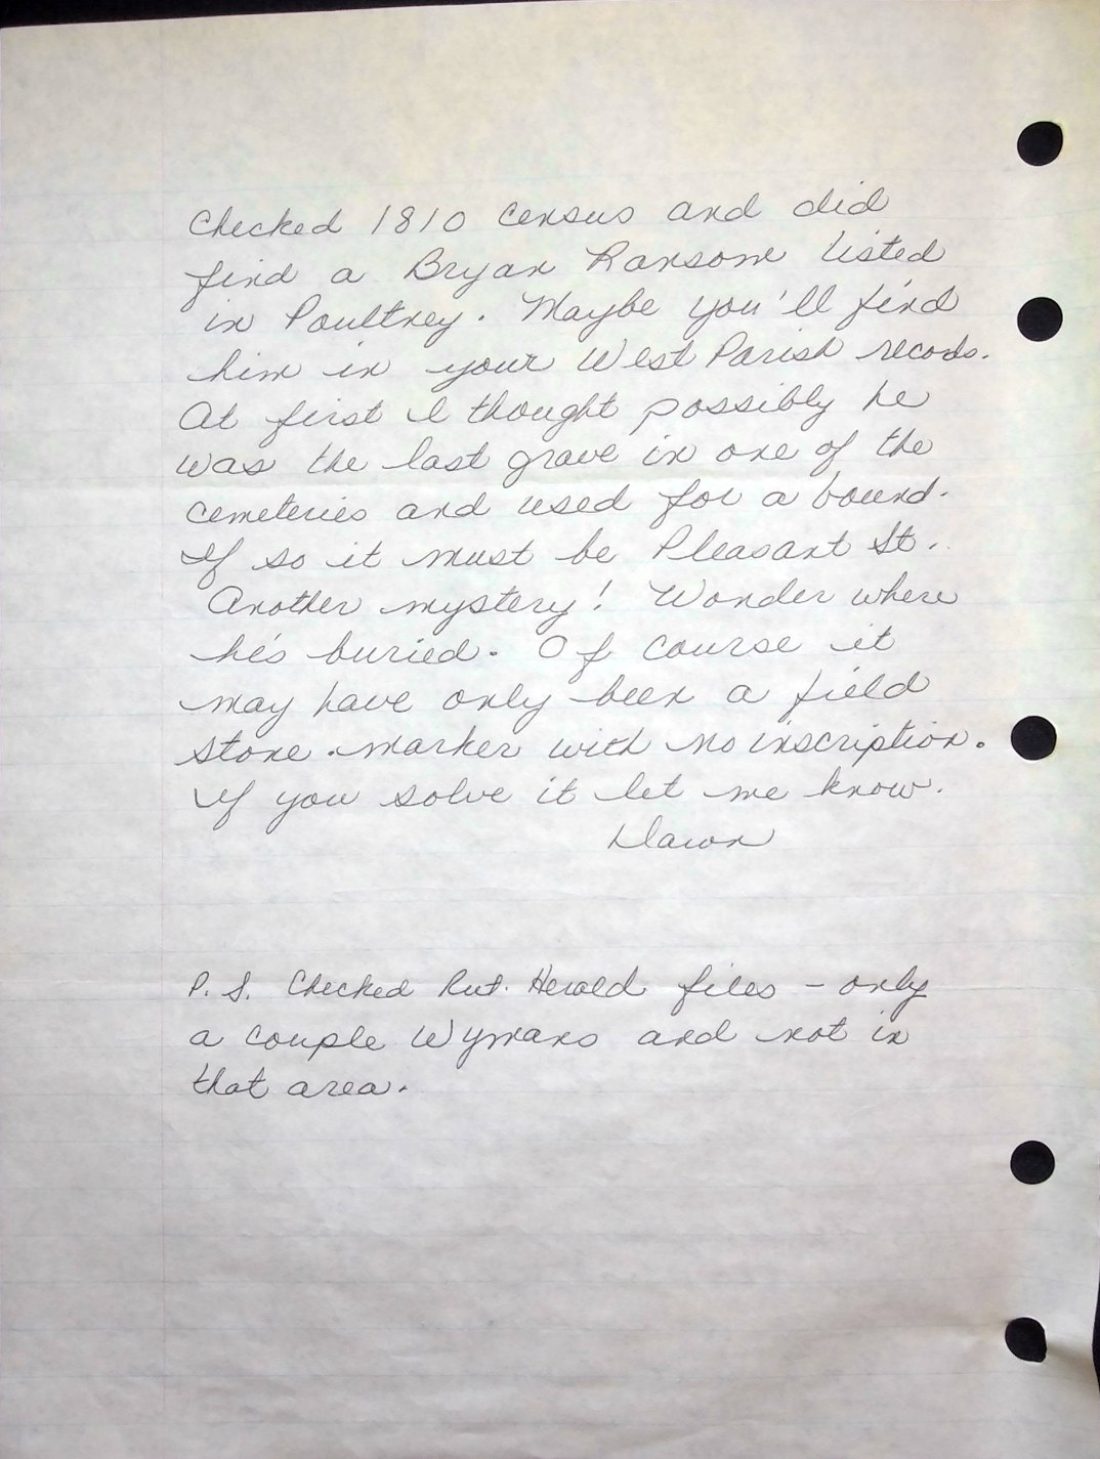 Checked 1810 census and did
find a Bryan Ransom listed
in Poultney. Maybe you'll find
him in your West Parish records.
At first I thought possibly he
was the last grave in one of the
cemeteries and used for a bound.
If so it must be Pleasant St.
Another mystery! Wonder where
he's buried. Of course it
may have only been a field
stone marker with no inscription.
If you solve it let me know.
Dawn
P.S. Checked Rut. Herald files - only
a couple Wymans and not in
that area.